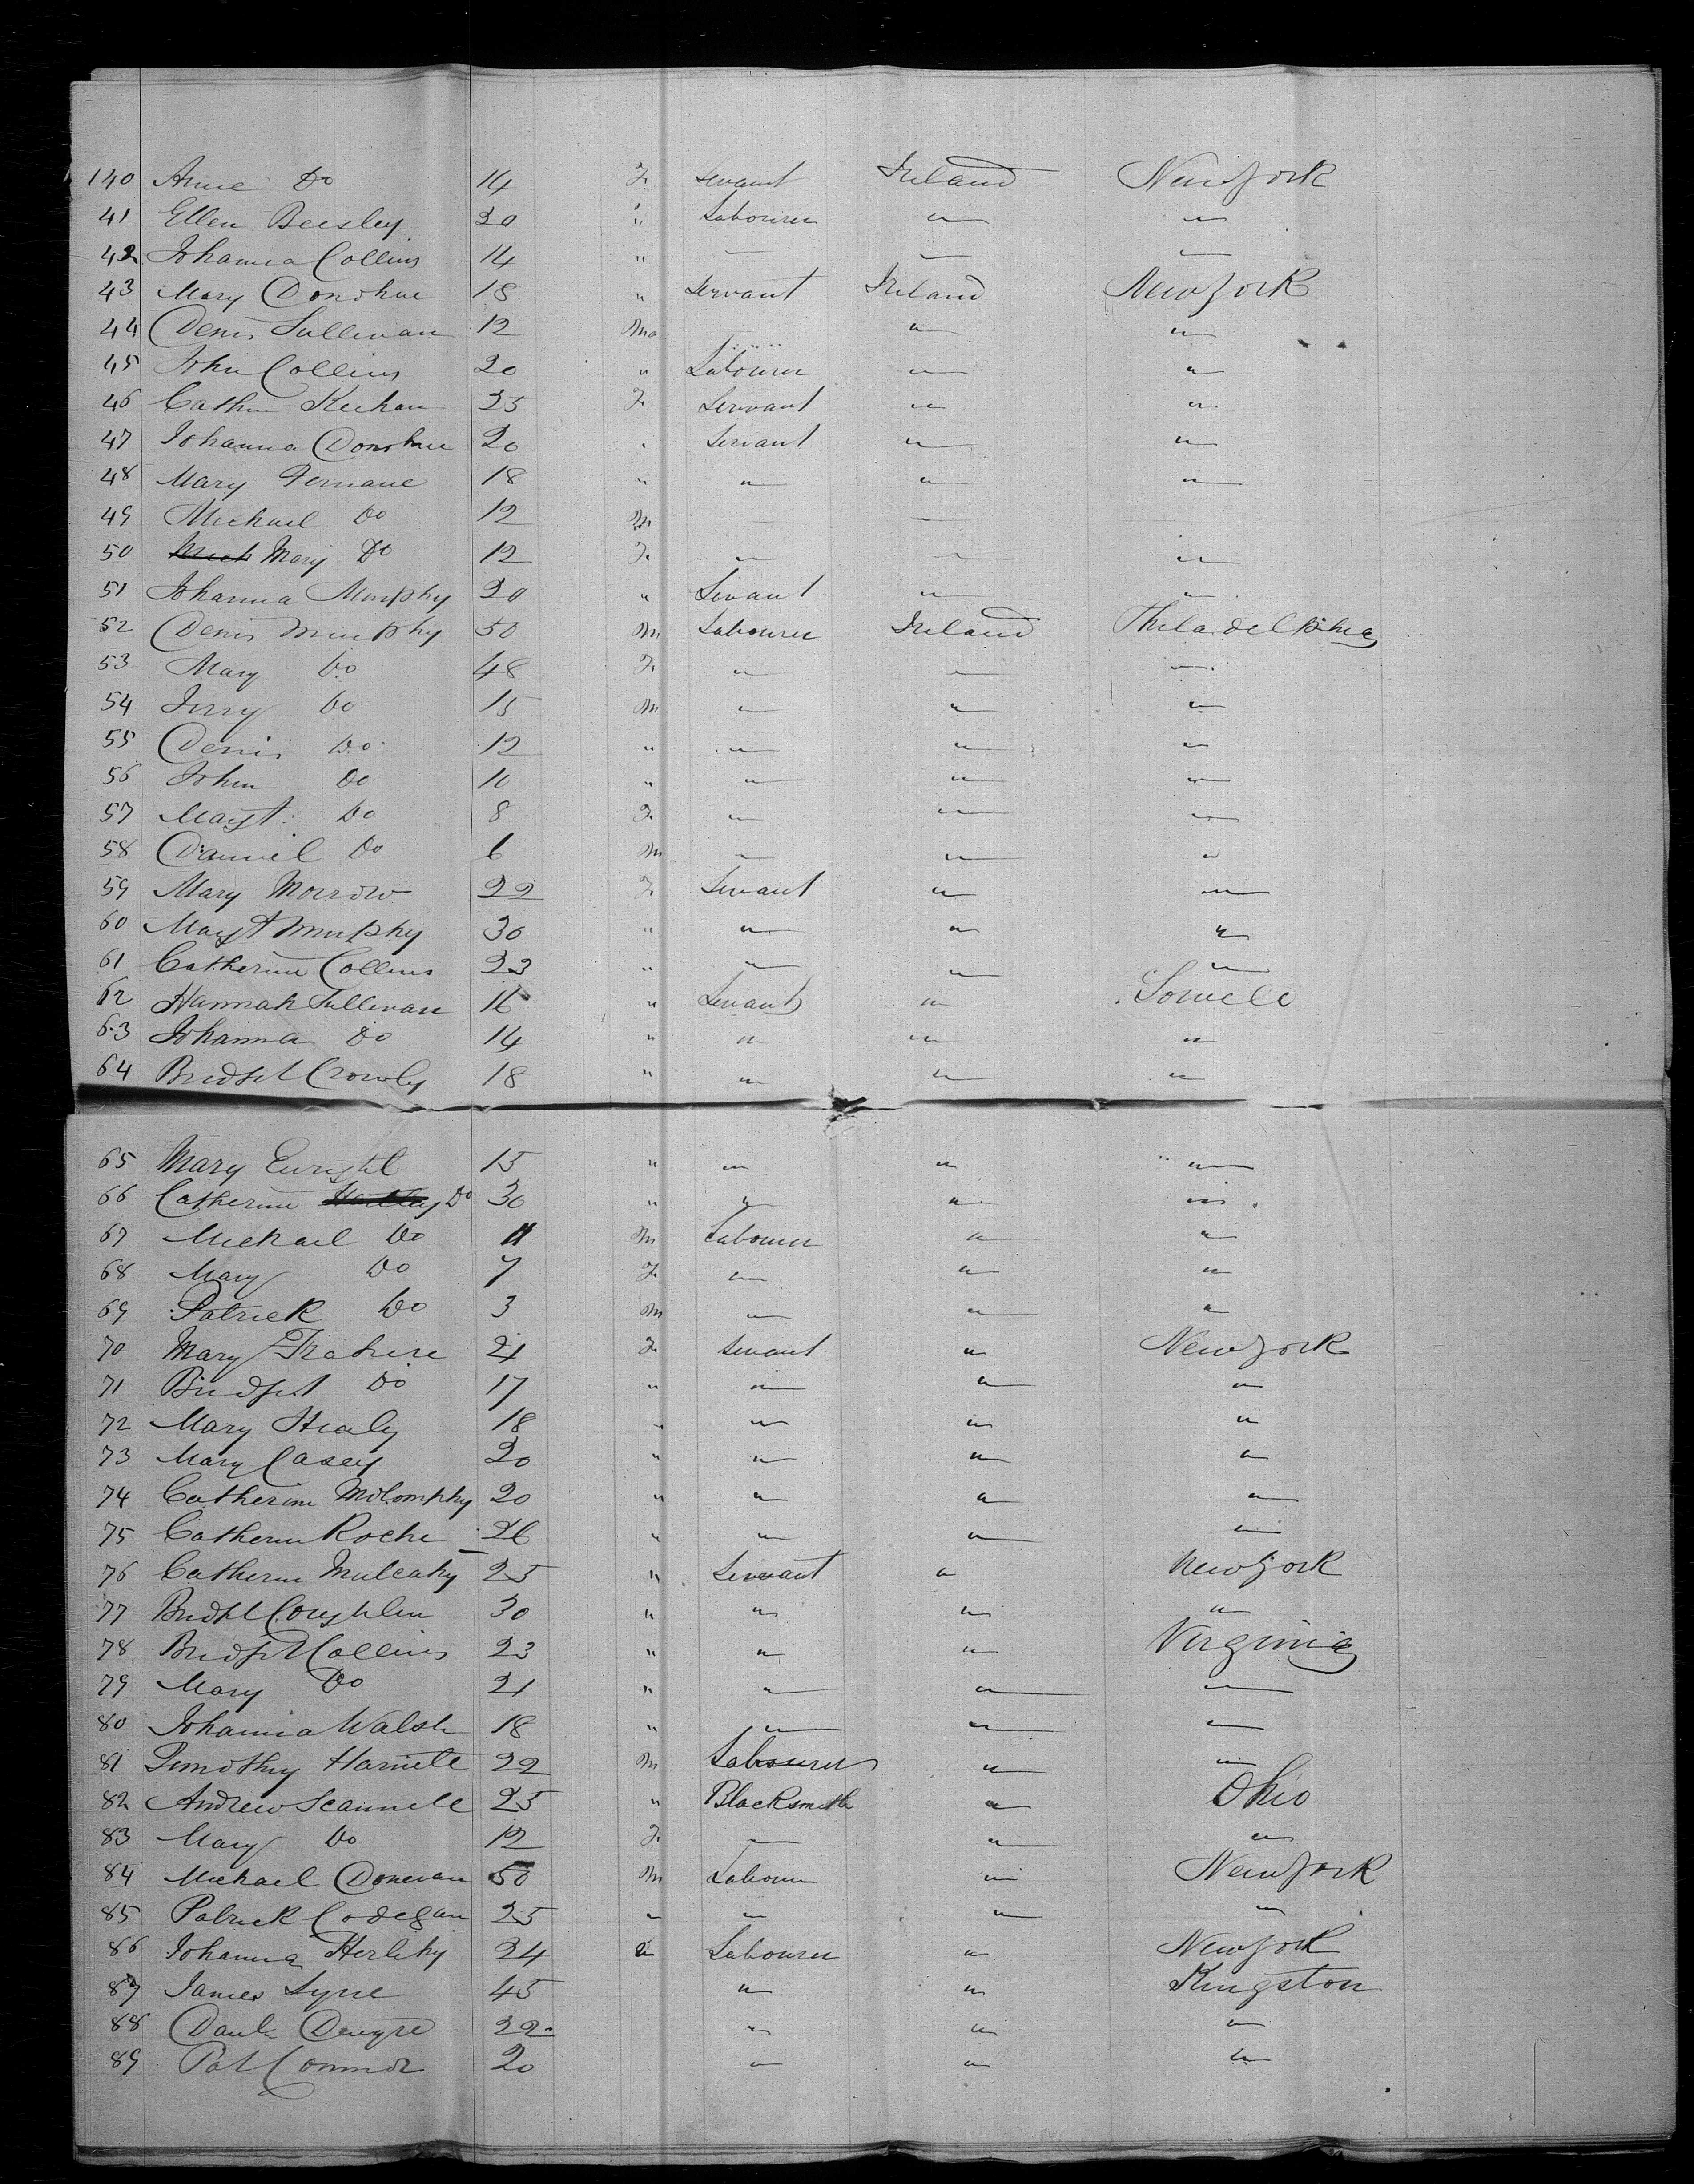 140 Anne Do 14 F. Servant Ireland New York
41 Ellen Beesley 20 " Labourer " "
42 Johanna Collins 14 " — — —
43 Mary Donohue 18 " Servant Ireland New York
44 Denis Sullivan 12 Ma " "
45 John Collins 20 " Labourer " "
46 Cathn Keehan 25 F. Servant " "
47 Johanna Donohue 20 " Servant " "
48 Mary Fernane 18 " " " "
49 Michael Do 12 M — —
50 Mary Do 12 F. " " "
51 Johanna Murphy 20 " Servant " "
52 Denis Murphy 50 M Labourer Ireland Philadelphia
53 Mary Do 48 F. " " "
54 Jerry Do 15 M " " "
55 Denis Do 12 " " " "
56 John Do 10 " " " "
57 Margt. Do 8 F. " " "
58 Danniel Do 6 M " " "
59 Mary Morrow 22 F. Servant " "
60 Margt Murphy 30 " " " "
61 Catherine Collins 23 " " " "
62 Hannah Sullivan 16 " Servant " Lowell
63 Johanna Do 14 " " " "
64 Bridget Crowly 18 " " " "
65 Mary Enright 15 " " " "
66 Catherine Do 30 " " " "
67 Michael Do 11 M Labourer " "
68 Mary Do 7 F. " " "
69 Patrick Do 3 M " " "
70 Mary 21 F. Servant " New York
71 Bridget Do 17 " " " "
72 Mary Healy 18 " " " "
73 Mary Casey 20 " " " "
74 Catherine McLomphy 20 " " " "
75 Catherin Roche 26 " " " "
76 Catherin Mulcahy 25 " Servant " New York
77 Bridt Coughlin 30 " " " "
78 Bridget Collins 23 " " " Virginia
79 Mary Do 21 " " " "
80 Johanna Walsh 18 " " " "
81 Timothy Harnett 22 M Labourer " "
82 Andrew Scannell 25 " Blacksmith " Ohio
83 Mary Do 12 F. " " "
84 Michael Donevan 50 M Labourer " New York
85 Patrick Codegan 25 " " " "
86 Johanna Herlihy 24 " Labourer " New York
87 James Lyne 45 " " Kingston
88 22 " " "
89 Pat Connor 20 " " "